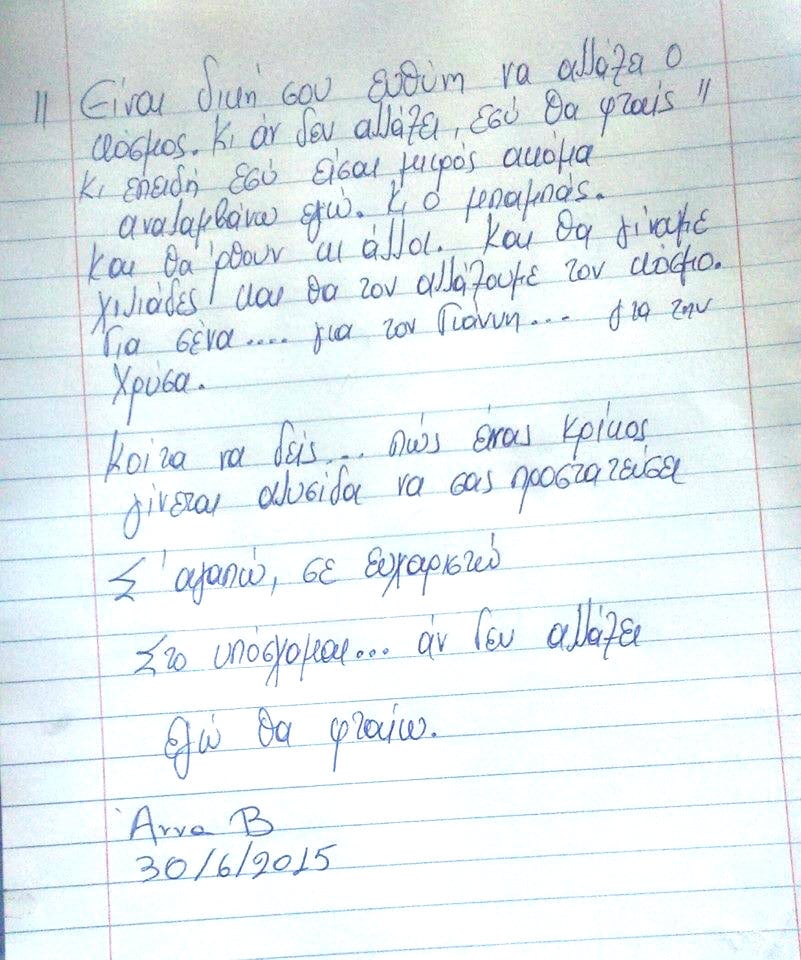 " Είναι δική σου ευθύνη να αλλάξει ο
κόσμος. Κι άν δεν αλλάξει, εσύ θα φταίς "
Κι επειδή εσύ είσαι μικρός ακόμα
αναλαμβάνω εγώ. Κι ο μπαμπάς.
Και θα 'ρθουν κι άλλοι. Και θα γίνουμε
χιλιάδες και θα τον αλλάξουμε τον κόσμο.
Για σένα.... για τον Γιάννη... για την
Χρύσα.
Κοίτα να δεις... πώς ένας κρίκος
γίνεται αλυσίδα να σας προστατεύσει
Σ' αγαπώ, σε ευχαριστώ
Στο υπόσχομαι... άν δεν αλλάξει
εγώ θα φταίω.
Αννα Β
30/6/2015